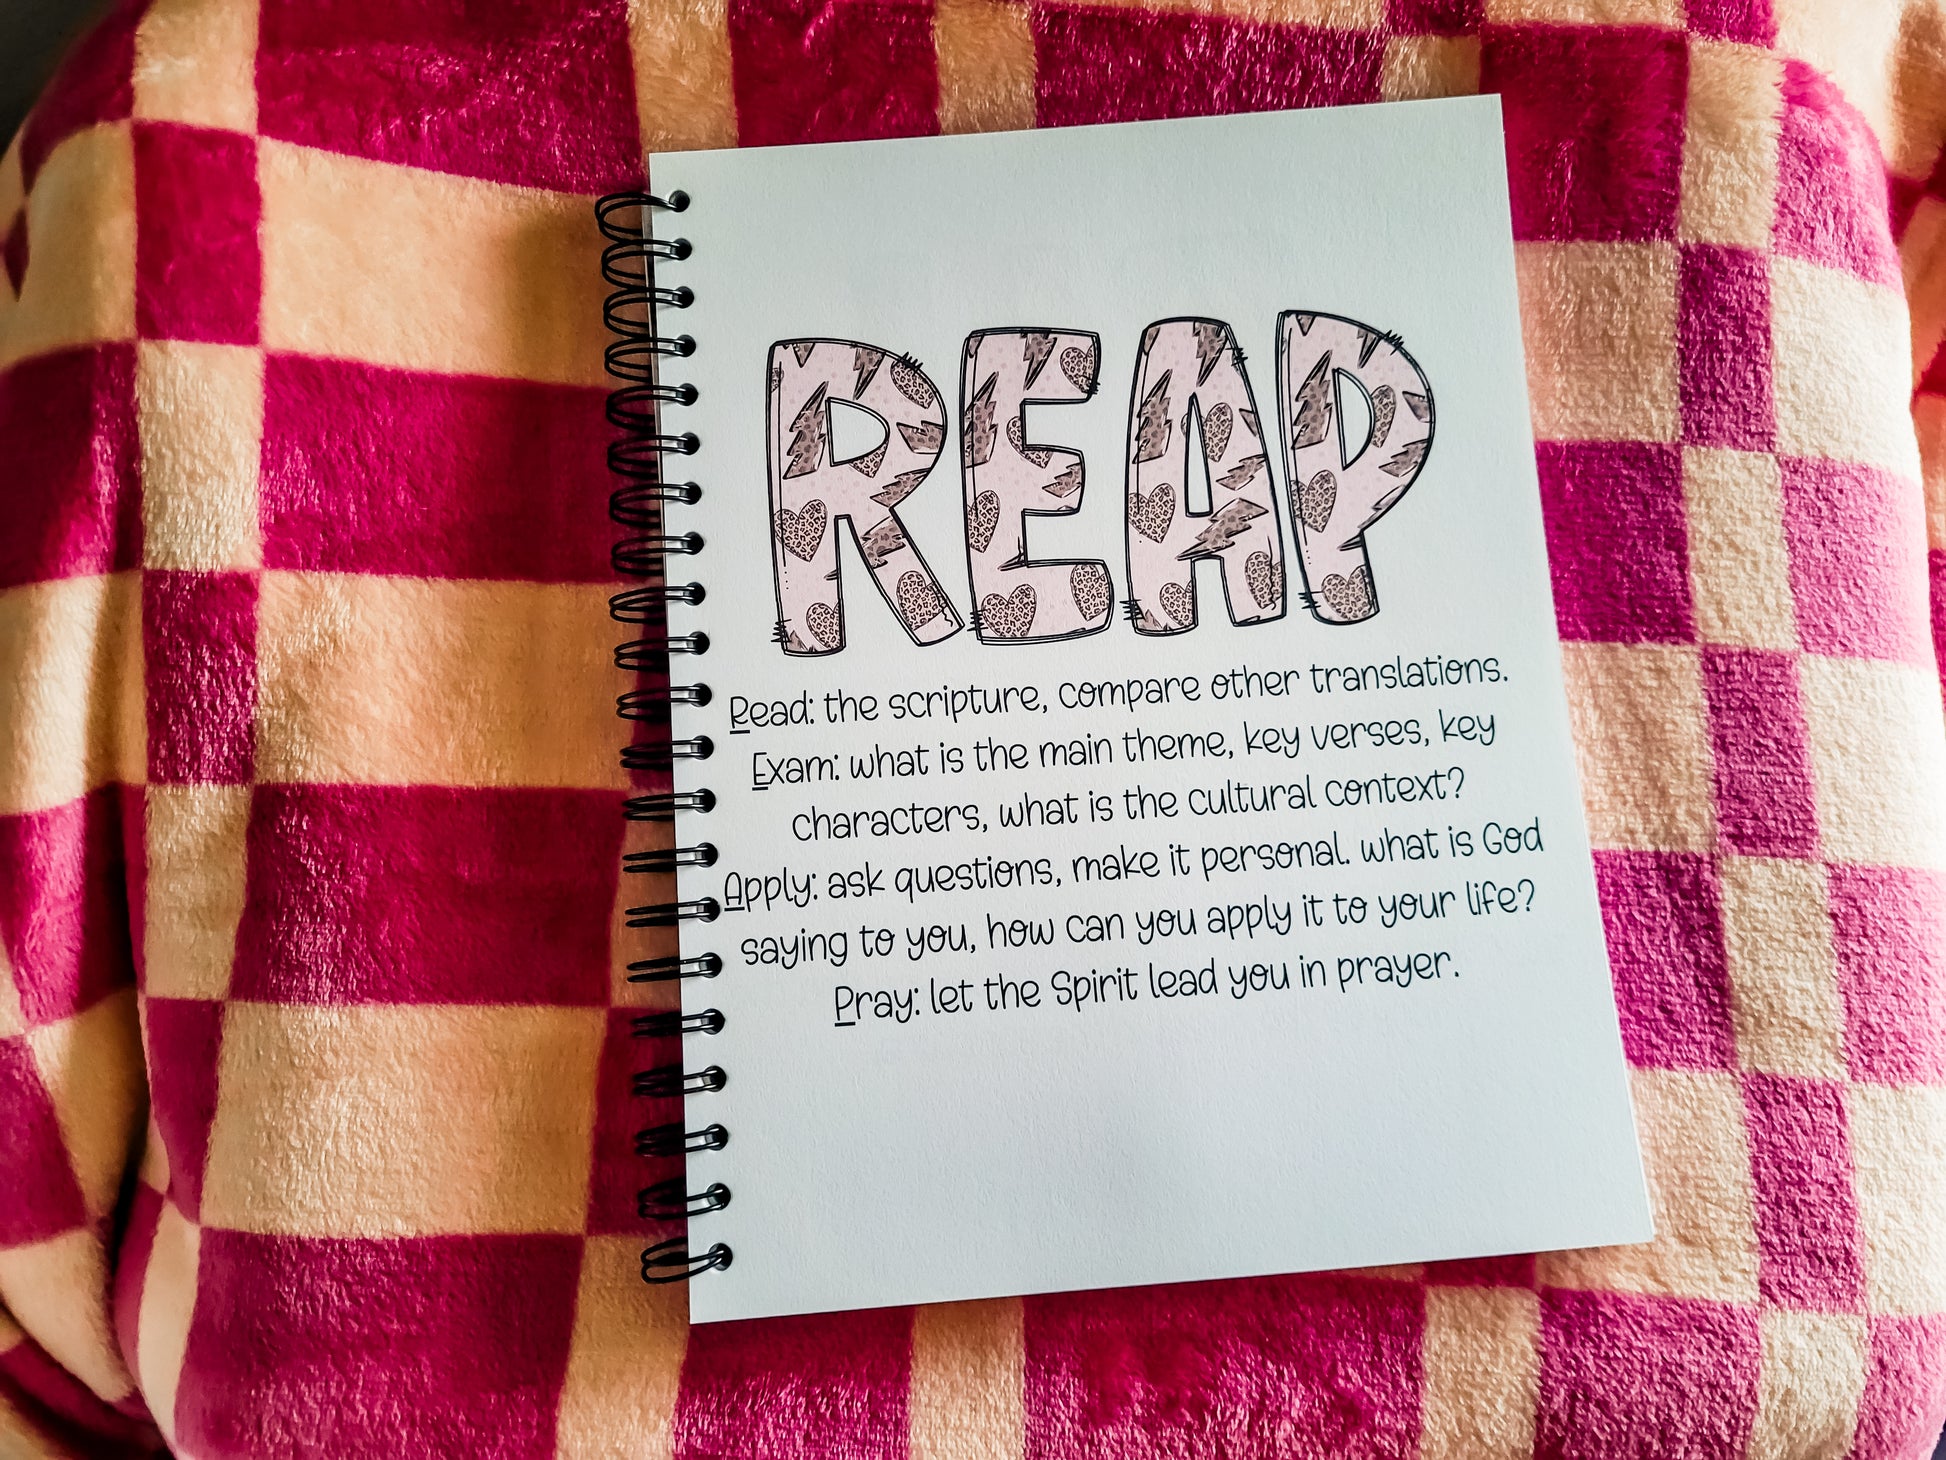 REAP
Read: the scripture, compare other translations.
Exam: what is the main theme, key verses, key
characters, what is the cultural context?
Apply: ask questions, make it personal. what is God
saying to you, how can you apply it to your life?
Pray: let the Spirit lead you in prayer.